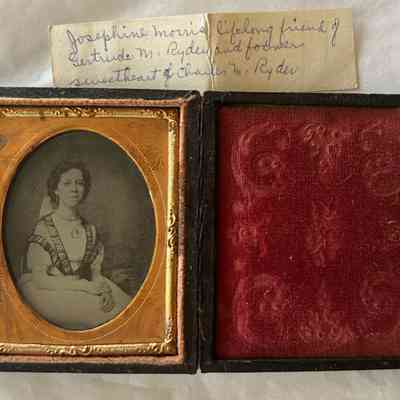 Josephine Morris, lifelong friend of
Gertrude M. Ryder and former
sweetheart of Charles M. Ryder